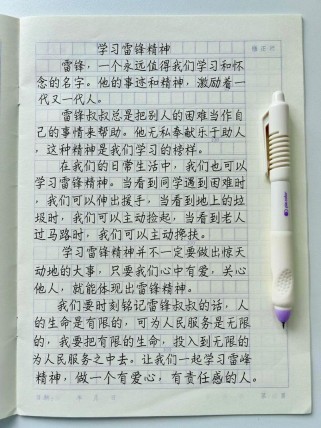 学习雷锋精神
雷锋,一个永远值得我们学习和怀
念的名字。他的事迹和精神,激励着一
代又一代人。
雷锋叔叔总是把别人的困难当作自
己的事情来帮助。他无私奉献乐于助人
,这种精神是我们学习的榜样。
在我们的日常生活中,我们也可以
学习雷锋精神。当看到同学遇到困难时
,我们可以伸出援手,当看到地上的垃
圾时,我们可以主动捡起,当看到老人
过马路时,我们可以主动搀扶。
学习雷锋精神并不一定要做出惊天
动地的大事,只要我们心中有爱,关心
他人,就能体现出雷锋精神。
我们要时刻铭记雷锋叔叔的话,人
的生命是有限的,可为人民服务是无限
的,我要把有限的生命,投入到无限的
为人民服务之中去。让我们一起学习雷峰
精神,做一个有爱心,有责任感的人。